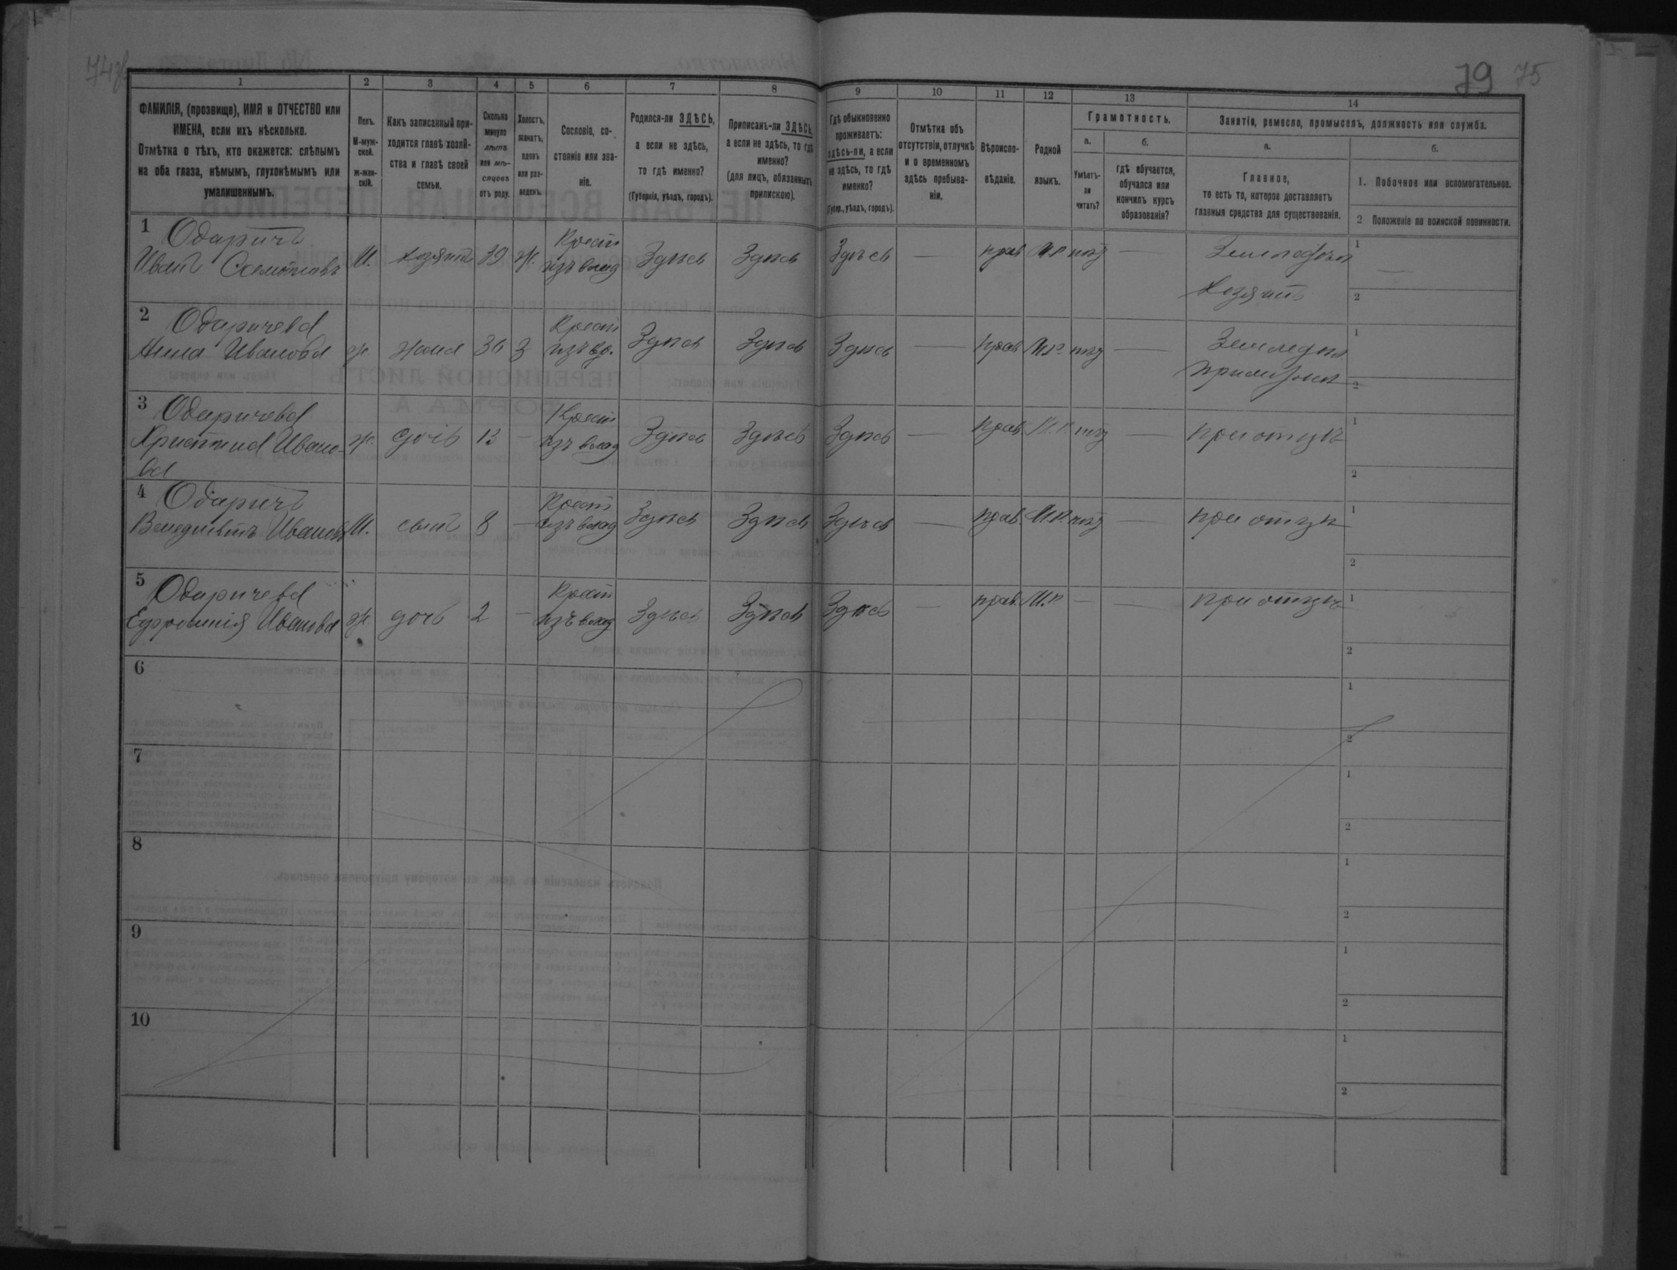 79 75
1 2 3 4 5 6 7 8 9 10 11 12 13 14
ФАМИЛІЯ, (прозвище), ИМЯ и ОТЧЕСТВО или
ИМЕНА, если ихъ нѣсколько.
Отмѣтка о тѣхъ, кто окажется: слѣпымъ
на оба глаза, нѣмымъ, глухонѣмымъ или
умалишеннымъ.
Полъ.
М-муж-
ской.
ж-жен-
скій.
Какъ записанный при-
ходится главѣ хозяй-
ства и главѣ своей
семьи.
Сколько
минуло
лѣтъ
или мѣ-
сяцевъ
отъ роду.
Холостъ,
женатъ,
вдовъ
или раз-
веденъ.
Сословіе, со-
стояніе или зва-
ніе.
Родился-ли ЗДѢСЬ,
а если не здѣсь,
то гдѣ именно?
(Губернія, уѣздъ, городъ).
Приписанъ-ли ЗДѢСЬ,
а если не здѣсь, то гдѣ
именно?
(для лицъ, обязанныхъ
припискою).
Гдѣ обыкновенно
проживаетъ:
здѣсь-ли, а если
не здѣсь, то гдѣ
именно?
(Губер., уѣздъ, городъ).
Отмѣтка объ
отсутствіи, отлучкѣ
и о временномъ
здѣсь пребыва-
ніи.
Вѣроиспо-
вѣданіе.
Родной
языкъ.
Грамотность.
а.
Умѣетъ-
ли
читать?
б.
гдѣ обучается,
обучался или
кончилъ курсъ
образованія?
Занятія, ремесло, промыселъ, должность или служба.
а.
Главное,
то есть то, которое доставляетъ
главныя средства для существованія.
б.
1. Побочное или вспомогательное.
2 Положеніе по воинской повинности.
1 Одаричъ
Иванъ М. хозяинъ 39 ж. Крест. изъ влад Здѣсь Здѣсь Здѣсь — прав М.Р нѣт — Земледѣл 1 —
Хозяинъ 2
2 Одаричева
Анна Иванова ж. жена 36 З Крест. изъ вл. Здѣсь Здѣсь Здѣсь — прав М.Р. нѣт — Земледѣл 1
2
3 Одаричева
Христина Ивано- ж. дочь 13 — Крест. изъ влад Здѣсь Здѣсь Здѣсь — прав М.Р нѣт — при отцѣ 1
ва 2
4 Одаричъ
Венедиктъ Ивановъ М. сынъ 8 — Крест. изъ влад Здѣсь Здѣсь Здѣсь — прав М.Р нѣт — при отцѣ 1
2
5 Одаричева
Ефросинія Иванова ж. дочь 2 — Крест. изъ влад Здѣсь Здѣсь Здѣсь — прав М.Р — — при отцѣ 1
2
6 1
2
7 1
2
8 1
2
9 1
2
10 1
2